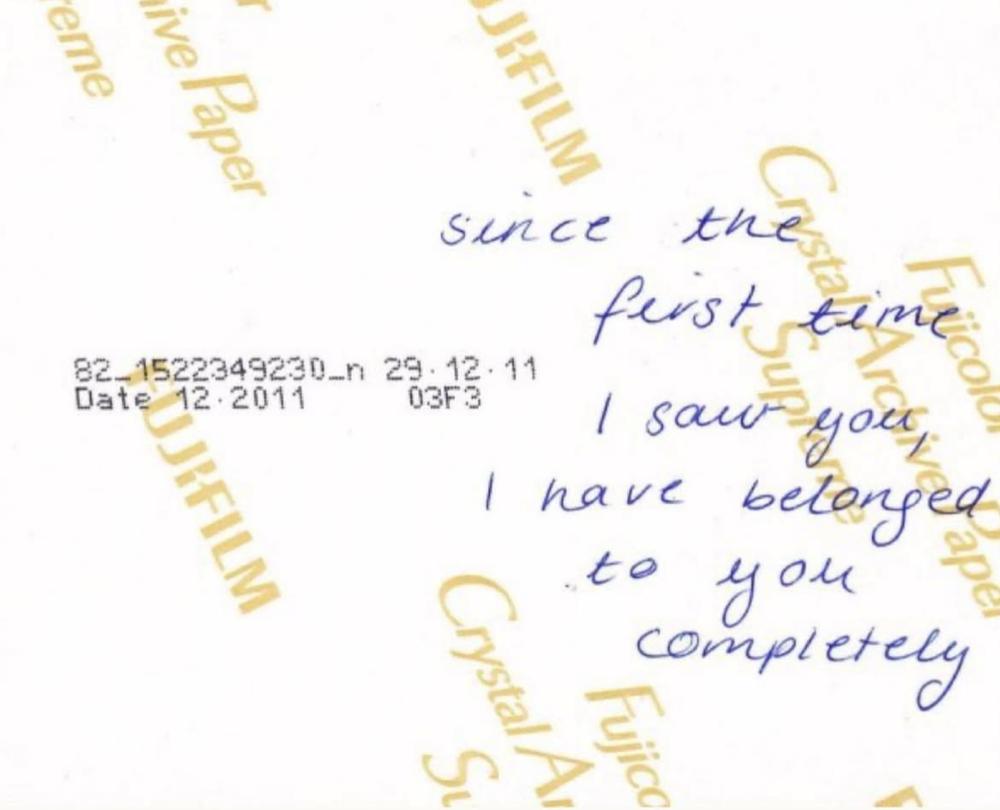 reme
hive Paper
UJIFILM
since the
first time
82_1522349230_n 29.12.11
Date 12.2011 03F3
I saw you,
I have belonged
to you
completely
FUJIFILM
Crystal Archive Paper
Supreme
Fujicolor
Crystal Ar
Su
Fujico